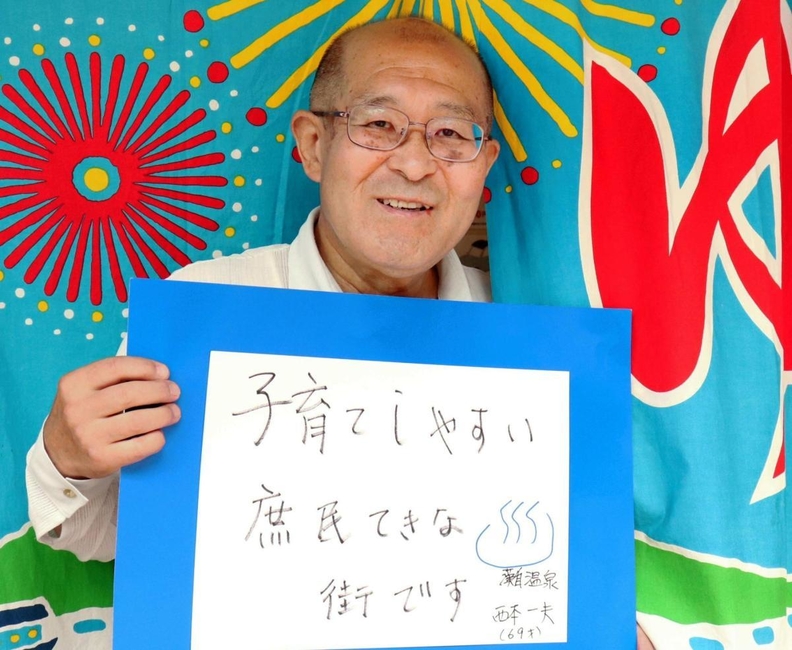 ゆ
子育てしやすい
庶民てきな
街です
瀬温泉
西本一夫
(69才)